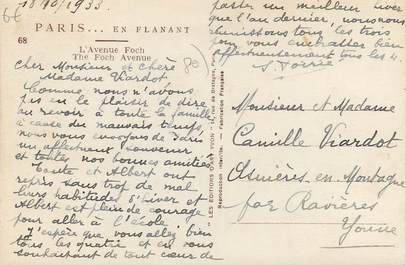 18/10/1933.
PARIS... EN FLANANT
68
L'Avenue Foch
The Foch Avenue
80
Cher Monsieur et Chère
Madame Viardot
Comme nous n'avons
pas eu le plaisir de dire
au revoir à toute la famille
à cause du mauvais temps,
nous vous envoyons de Paris
un affectueux souvenir
et toutes nos bonnes amitiés.
et Albert ont
repris sans trop de mal
leurs habitudes d'hiver et
Albert est plein de courage
pour aller à l'école.
J'espère que vous allez bien
tous les quatre et en vous
souhaitant de tout cœur de
passer un meilleur hiver
que l'an dernier, nous nous
réunissons tous les trois
pour vous embrasser bien
affectueusement tous les 4.
LES EDITIONS D'ART YVON
Reproduction interdite. Fabrication Française
Monsieur et Madame
Camille Viardot
Asnières en Montagne
par Ravières
Yonne